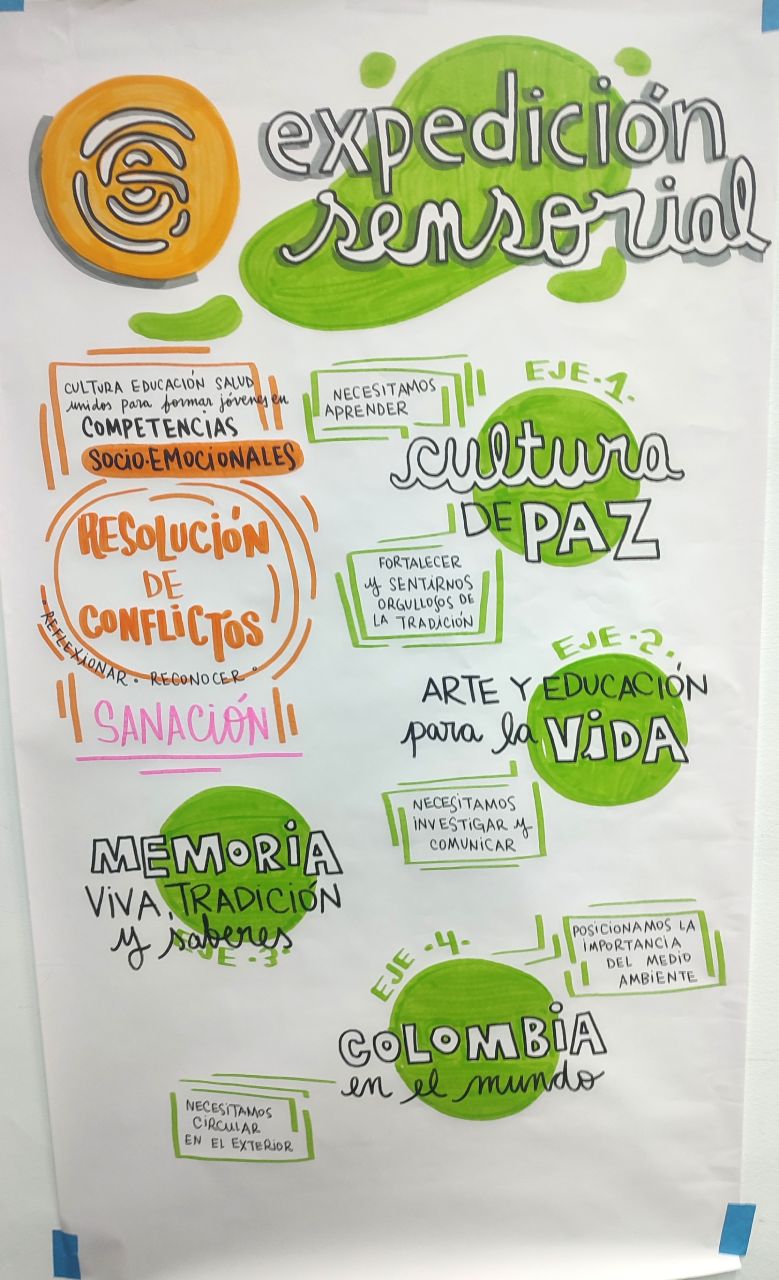 expedición
sensorial
CULTURA EDUCACIÓN SALUD
unidos para formar jóvenes en
COMPETENCIAS
SOCIO-EMOCIONALES
RESOLUCIÓN
DE
CONFLICTOS
• REFLEXIONAR • RECONOCER •
SANACIÓN
NECESITAMOS
APRENDER
EJE-1.
cultura
DE PAZ
FORTALECER
y SENTIRNOS
ORGULLOSOS DE
LA TRADICIÓN
EJE-2.
ARTE Y EDUCACIÓN
para la VIDA
NECESITAMOS
INVESTIGAR y
COMUNICAR
MEMORIA
VIVA, TRADICIÓN
y saberes
EJE-3.
EJE-4.
COLOMBIA
en el mundo
POSICIONAMOS LA
IMPORTANCIA
DEL MEDIO
AMBIENTE
NECESITAMOS
CIRCULAR
EN EL EXTERIOR